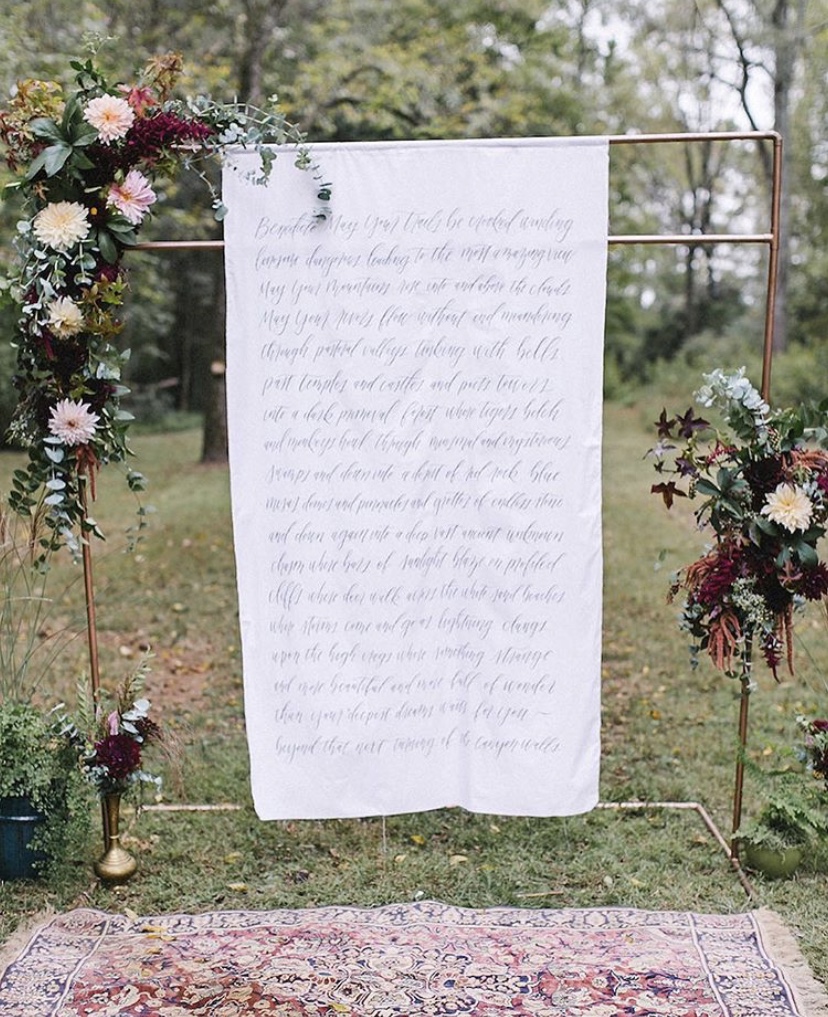 Benedicto May Your trails be crooked winding
lonesome dangerous leading to the most amazing view
May Your Mountains rise into and above the clouds
May Your rivers flow without end meandering
through pastoral valleys tinkling with bells
past temples and castles and poets towers
into a dark primeval forest where tigers belch
and monkeys howl through miasmal and mysterious
swamps and down into a desert of red rock blue
mesas domes and pinnacles and grottos of endless stone
and down again into a deep vast ancient unknown
chasm where bars of sunlight blaze on profiled
cliffs where deer walk across the white sand beaches
where storms come and go as lightning clangs
upon the high crags where something strange
and more beautiful and more full of wonder
than your deepest dreams waits for you —
beyond that next turning of the canyon walls